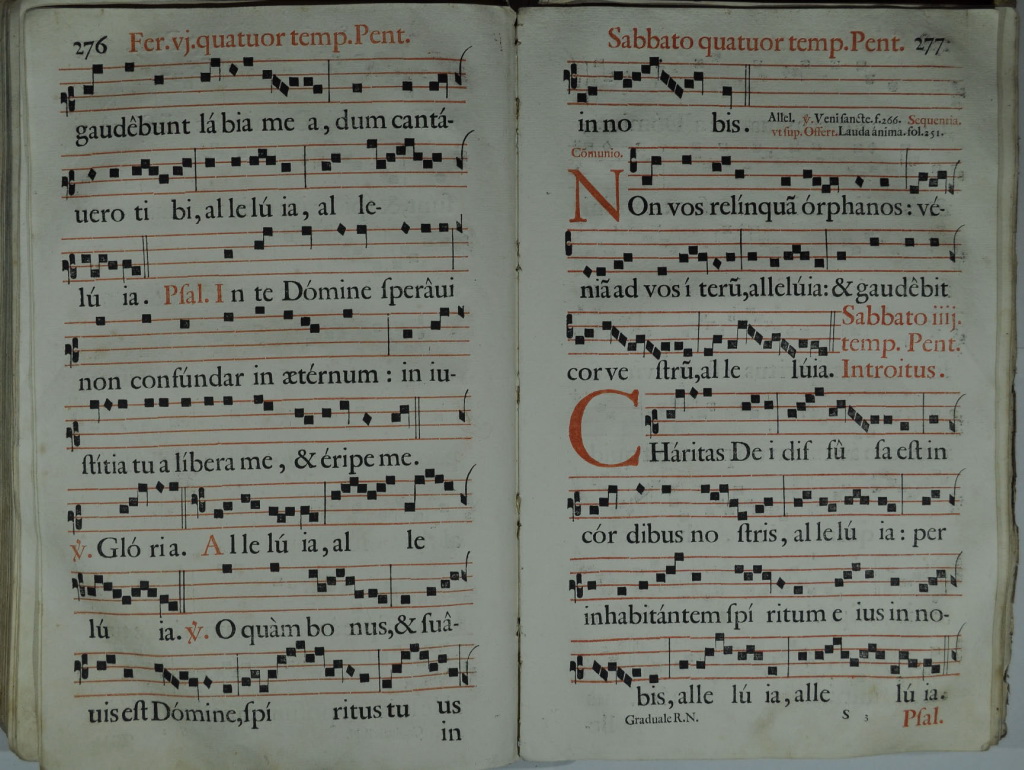 276 Fer. vj. quatuor temp. Pent.
gaudêbunt lá bia me a, dum cantá-
uero ti bi, al le lú ia, al le-
lú ia. Psal. I n te Dómine ſperâui
non confúndar in ætérnum : in iu-
ſtítia tu a líbera me, & éripe me.
℣. Gló ria. A l le lú ia, al le
lú ia. ℣. O quàm bo nus, & ſuâ-
uis eſt Dómine, ſpí ritus tu us
in
Sabbato quatuor temp. Pent. 277.
in no bis. Allel. ℣. Veni ſancte. f. 266. Sequentia.
vt ſup. Offert. Lauda ánima. fol. 251.
Cõmunio.
NOn vos relínquã órphanos : vé-
niã ad vos í terũ, allelúia: & gaudêbit
cor ve ſtrũ, al le lúia. Sabbato iiij.
temp. Pent.
Introitus.
CHáritas De i dif fû ſa eſt in
cór dibus no ſtris, al le lú ia : per
inhabitántem ſpí ritum e ius in no-
bis, alle lú ia, alle lú ia.
Graduale R.N. S 3 Pſal.